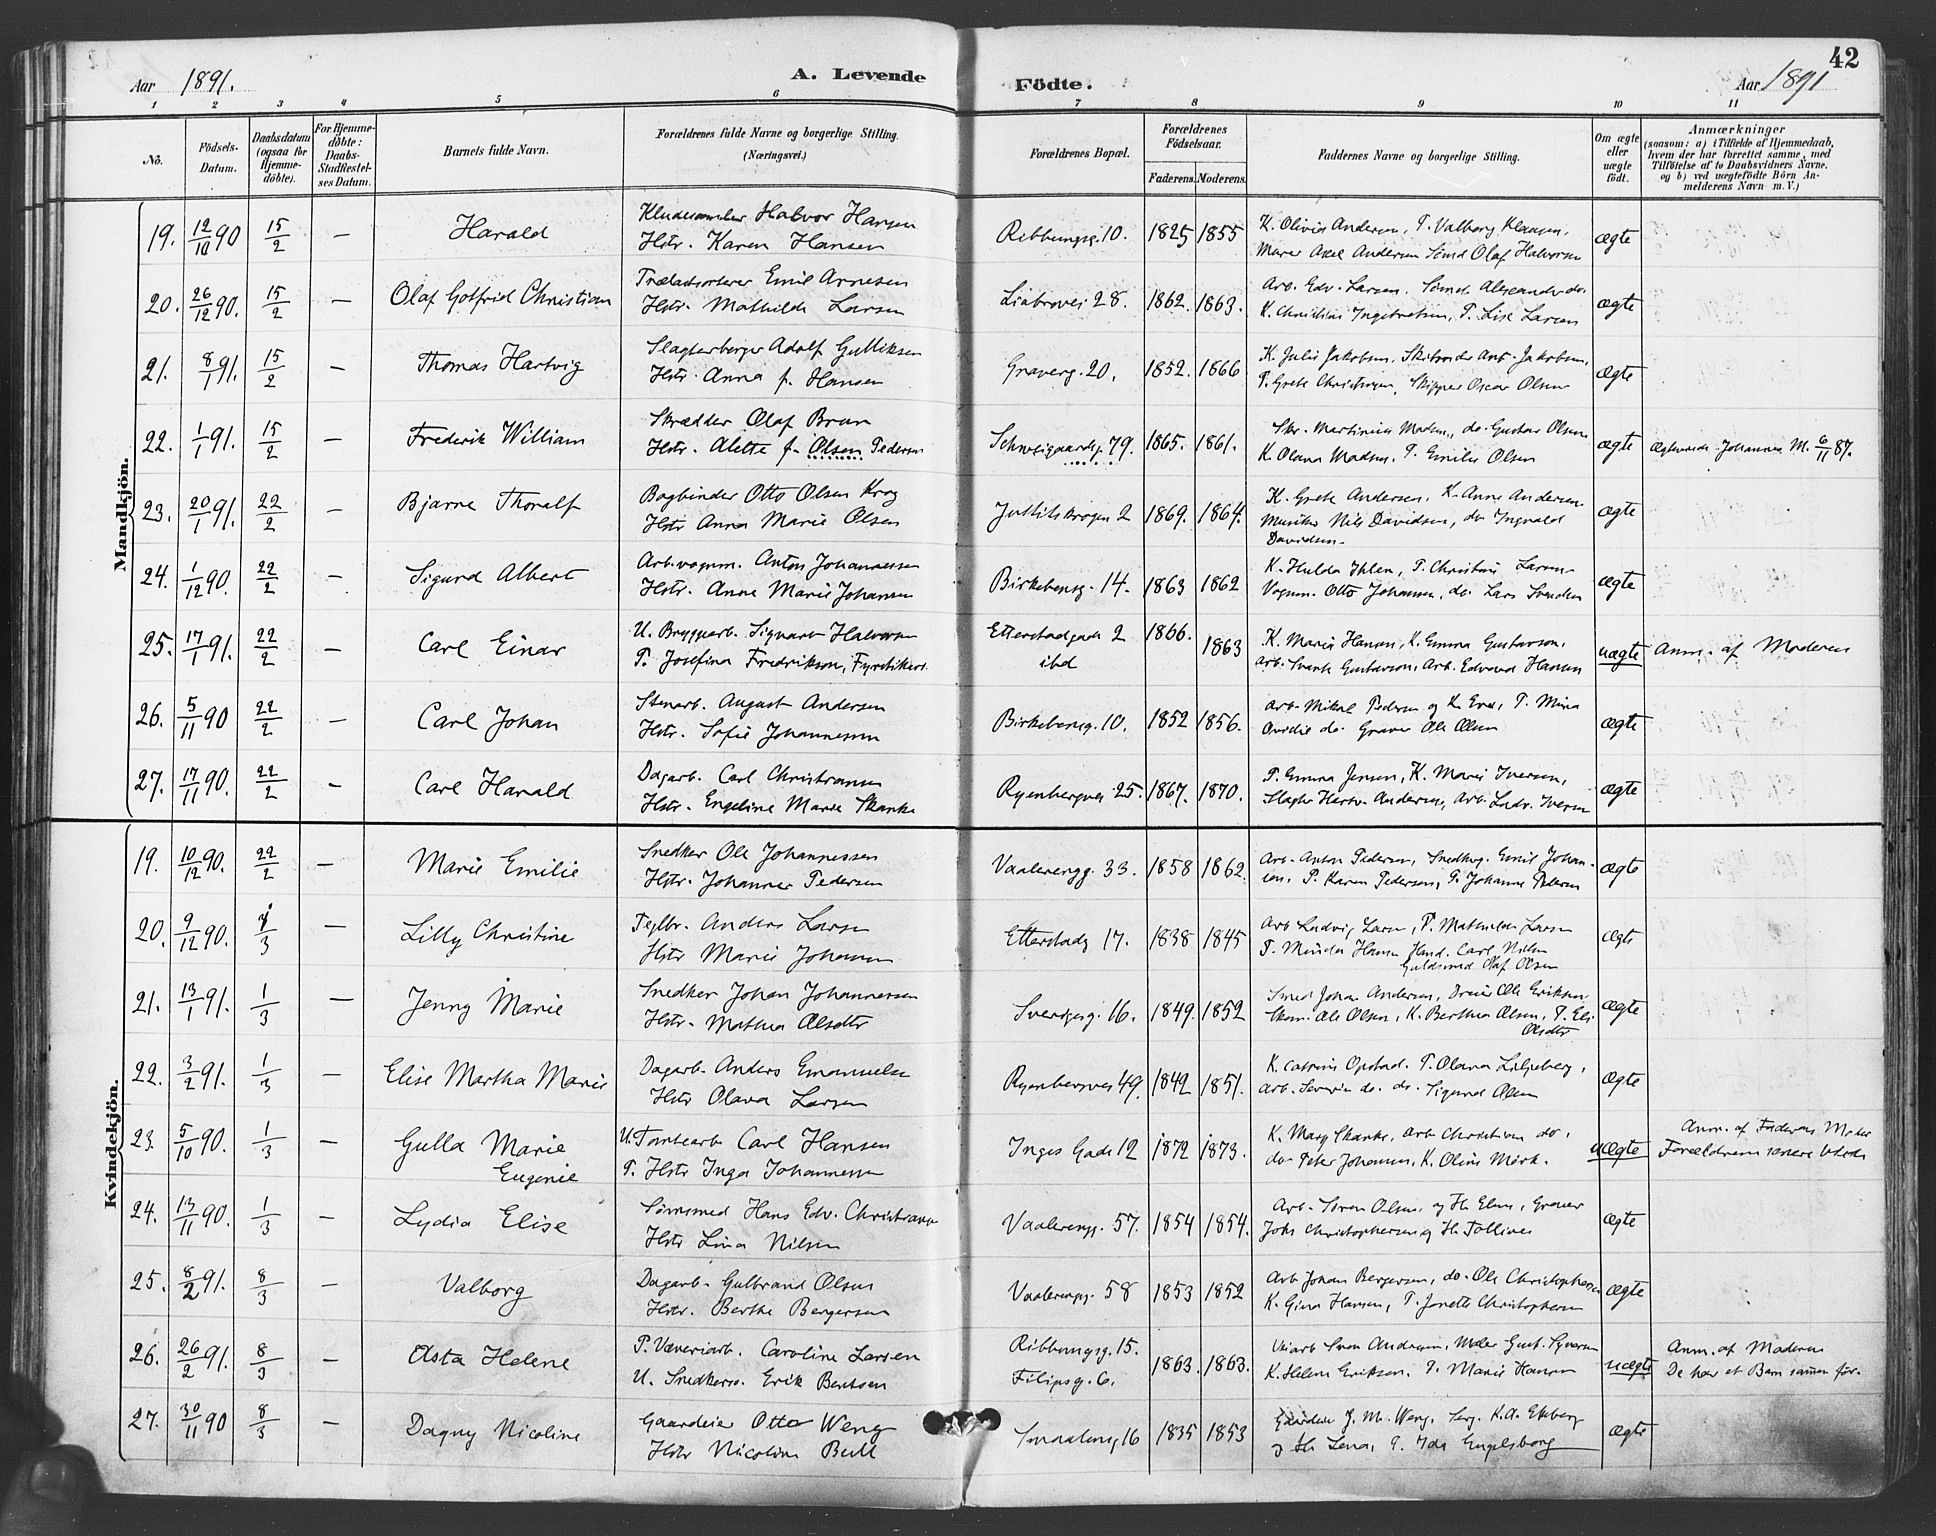 42
Aar 1891. A. Levende Födte. Aar 1891
1 2 3 4 5 6 7 8 9 10 11
No. Födsels-Datum. Daabsdatum (ogsaa for Hjemme-döbte). For Hjemme-döbte: Daabs-Stadfæstel-ses Datum. Barnets fulde Navn. Forældrenes fulde Navne og borgerlige Stilling. (Næringsvei.) Forældrenes Bopæl. Forældrenes Födselsaar. Faderens. Moderens. Faddernes Navne og borgerlige Stilling. Om ægte eller uægte födt. Anmærkninger (saasom: a) i Tilfælde af Hjemmedaab, hvem der har forrettet samme, med Tilföielse af to Daabsvidners Navne. og b) ved uægtefödte Börn An-melderens Navn m. V.)
Mandkjön.
19. 12/10 90 15/2 — Harald Halvor Hansen Ribbungsg. 10. 1825 1855 K. Olivia Andersen, P. Valborg Klausen, ægte
Hstr. Karen Hansen Murer Axel Andersen Olaf Halvorsen
20. 26/12 90. 15/2 — Olaf Gotfrid Christian Emil Arnesen Liabrovei 28. 1862. 1863. Arb. Edv. Larsen, ægte
Hstr. Mathilde Larsen K. Christine P. Lise Larsen
21. 8/1 91. 15/2 — Thomas Hartvig Adolf Gulliksen Graverg. 20. 1852. 1866 K. Julie Jakobsen, Jakobsen, ægte
Hstr. Anna f. Hansen P. Grete Skipper Oscar Olsen
22. 1/1 91. 15/2 — Frederik William Skrædder Olaf Brun Schweigaardsg. 79. 1865. 1861. Skr. Martinius Madsen, do. Gustav Olsen ægte Johannes M. 6/11 87.
Hstr. Alette f. Olsen Pedersen K. Olava Madsen. P. Emilie Olsen
23. 20/1 91. 22/2 — Bjarne Thoralf Bogbinder Otto Olsen Krog 2 1869. 1864. K. Grete Andersen, K. Anne Andersen ægte
Hstr Anna Marie Olsen Nils Davidsen, do Ingvald
Davidsen.
24. 1/12 90. 22/2 — Sigurd Albert Arb. vognm. Anton Johannessen Birkebeng. 14. 1863 1862 K. Hulda Ihlen, P. Christine Larsen ægte
Hstr. Anne Marie Johansen Vognm. Otto Johansen, do. Lars Svendsen
25. 17/1 91. 22/2 — Carl Einar U. Bryggearb. Sigvart Halvorsen Etterstadgade 2 1866. 1863 K. Marie Hansen, K. Emma Gustavson, uægte Anm. af Moderen
P. Josefina Fredrikson, Fyrstikarb. ibd arb. Gustavson, Arb. Edvard Hansen
26. 5/11 90 22/2 — Carl Johan Stenarb. August Andersen Birkebeng. 10. 1852 1856. Arb. Mikal Pedersen og K. P. Mina ægte
Hstr. Sofie Johannessen do. Graver Ole Olsen
27. 17/11 90. 22/2 — Carl Harald Dagarb. Carl Christiansen Ryenbergvei 25. 1867. 1870. P. Emma Jensen, K. Marie Iversen, ægte
Hstr. Engeline Marie Skanke Slagter Hartv. Andersen, Arb. Ludv. Iversen
Kvindekjön.
19. 10/12 90. 22/2 — Marie Emilie Snedker Ole Johannessen Vaalerengg. 33. 1858 1862. Arb. Anton Pedersen, Snedkersv. Emil Johan- ægte
Hstr. Johanne Pedersen sen, P. Karen Pedersen, P. Johanne Pedersen
20. 9/12 90. /3 — Lilly Christine Teglbr. Anders Larsen Etterstadg 17. 1838 1845 Arb Ludvig Larsen, P. Mathilde Larsen ægte
Hstr Marie Johansen P. Minda Hansen Hand. Carl Nilsen
Guldsmed Olaf Olsen
21. 13/1 91. 1/3 — Jenny Marie Snedker Johan Johannessen Sverresg. 16. 1849. 1852 Smed Johan Andersen, Dreier Ole Eriksen ægte
Hstr. Mathea Olsdtr Skom. Ole Olsen, K. Berthea Olsen, P. Eli
Olsdtr
22. 3/2 91. 1/3 — Elise Martha Marie Dagarb. Anders Emanuelsen Ryenbergvei 49. 1842 1851. K. Catrine Opstad. P. Olava Liljeberg, ægte
Hstr Olava Larsen Arb. Severin do. do. Sigurd Olsen
23. 5/10 90. 1/3 — Gulla Marie U. Tomtearb Carl Hansen Inges Gade 12 1872 1873. K. Mary Skanke, Arb Christian do, uægte Anm. af Faderens Moder
Eugenie P. Hstr Inga Johannessen do Peter Johansen, K. Oline Mørk. Forældrene senere
24. 13/11 90. 1/3 — Lydia Elise Hans Edv. Christiansen Vaalerengg. 57. 1854 1854. Arb. Søren Olsen, og H. Graver ægte
Hstr Lina Nilsen Johs Christophersen og H.
25. 8/2 91. 8/3 — Valborg Dagarb. Gulbrand Olsen Vaalerengg. 58 1853 1852 Arb Johan Bergersen, do. Ole Christophersen ægte
Hstr. Berthe Bergersen K. Gina Hansen, P. Jonette Christophersen
26. 26/2 91. 8/3 — Asta Helene P. Væveriarb. Caroline Larsen Ribbungsg. 15. 1863. 1863. Sven Andersen, uægte Anm. af Moderen
U. Snedkersv. Erik Bentsen Filipsg. 6. K. Helene Eriksen. P. Marie Hansen De har et Barn sammen før.
27. 30/11 90 8/3 — Dagny Nicoline Gaardeier Otto Weng Smaaleng. 16 1835 1853 Gaardeier J. M. Weng, K. A. Ekeberg ægte
Hstr Nicoline Bull og H. Lena, P. Ida Engelsborg